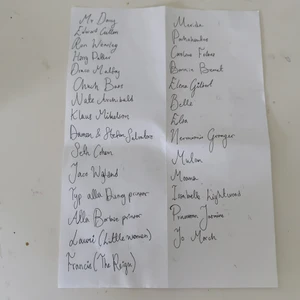 Mr Darcy
Edward Cullen
Ron Weasley
Harry Potter
Draco Malfoy
Chuck Bass
Nate Archibald
Klaus Mikaelson
Damon & Stefan Salvatore
Seth Cohen
Jace Wayland
Typ alla Disney prinsar
Alla Barbie prinsar
Laurie (Little women)
Francis (The Reign)
Merida
Pocahontas
Caroline Forbes
Bonnie Bennet
Elena Gilbert
Belle
Elsa
Hermione Granger
Mulan
Moana
Isabelle Lightwood
Prinsessan Jasmine
Jo March